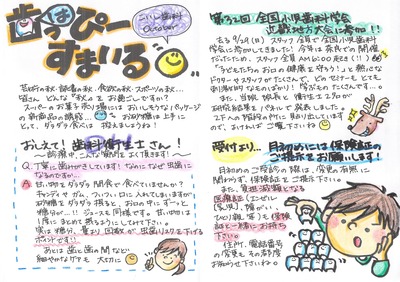 歯っぴー
すまいる
こにし歯科
October
芸術の秋・読書の秋・食欲の秋・スポーツの秋…
皆さん どんな"秋"を お過ごしですか?
スーパーのお菓子売り場には おいしそうなパッケージ
の新商品の誘惑…
とって、ダラダラ食べは 控えましょうね!
おしえて!歯科衛生士さん!
～診療中、こんな質問をよく頂きます!～
Q. 丁寧に歯みがきしています! なのになぜ虫歯に
なるのですか?
A. 甘い物をダラダラ間食で食べていませんか?
キャンディやガム、ついつい口に入れてしまいますが
砂糖をダラダラ摂ると、お口の中に ずーっと
糖分が…!! ジュースも同様です。甘い物は
1度にまとめて摂るようにしてみて下さい。
実は糖分、量より、回数が虫歯リスクを下げる
ポイントです!!
あとは歯と歯の間など
細やかなケアも 大切に
第32回 全国小児歯科学会
近畿地方大会に参加!!
去る9/29(日) スタッフ全員で全国小児歯科
学会に参加してきました! 今年は奈良での開催
だったため、スタッフ全員 AM6:00発とは!!
「子どもたちのお口の健康を守ろう!」と熱心な
ドクターやスタッフがたくさんで、どのセミナーも とても
刺激的なものばかり! 学びもたくさんです…。
また、当院 院長と 衛生士 2名が
研究結果をパネルで発表しました。
2Fへの階段の所に貼り出しています
ので、よければ ご覧下さいね
受付より… 月初めには保険証の
ご提示をお願いします!
月初めのご受診の時は、変更の有無に
関わらず、保険証をご提示下さい。
また、負担減額となる
医療証(こども
(乳児)、障がい、
ひとり親、等)も保険
証と一緒にお持ち
下さい。
住所、電話番号
の変更もその都度
お知らせ下さいね。